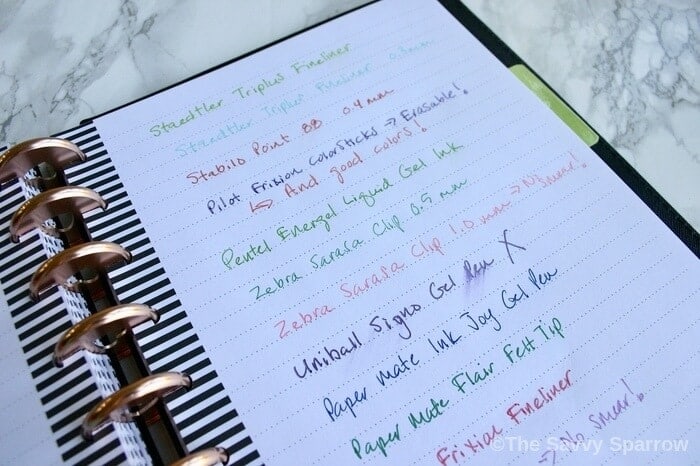 Staedtler Triplus Fineliner
Staedtler Triplus Fineliner 0.3mm
Stabilo Point 88 0.4 mm
Pilot Frixion Colorsticks → Erasable!
↳ And good colors!
Pentel Energel Liquid Gel Ink
Zebra Sarasa Clip 0.5 mm
Zebra Sarasa Clip 1.0 mm → No smear!
Uniball Signo Gel Pen X
Paper Mate Ink Joy Gel Pen
Paper Mate Flair Felt Tip
Frixion Fineliner
→ No smear!
©The Savvy Sparrow